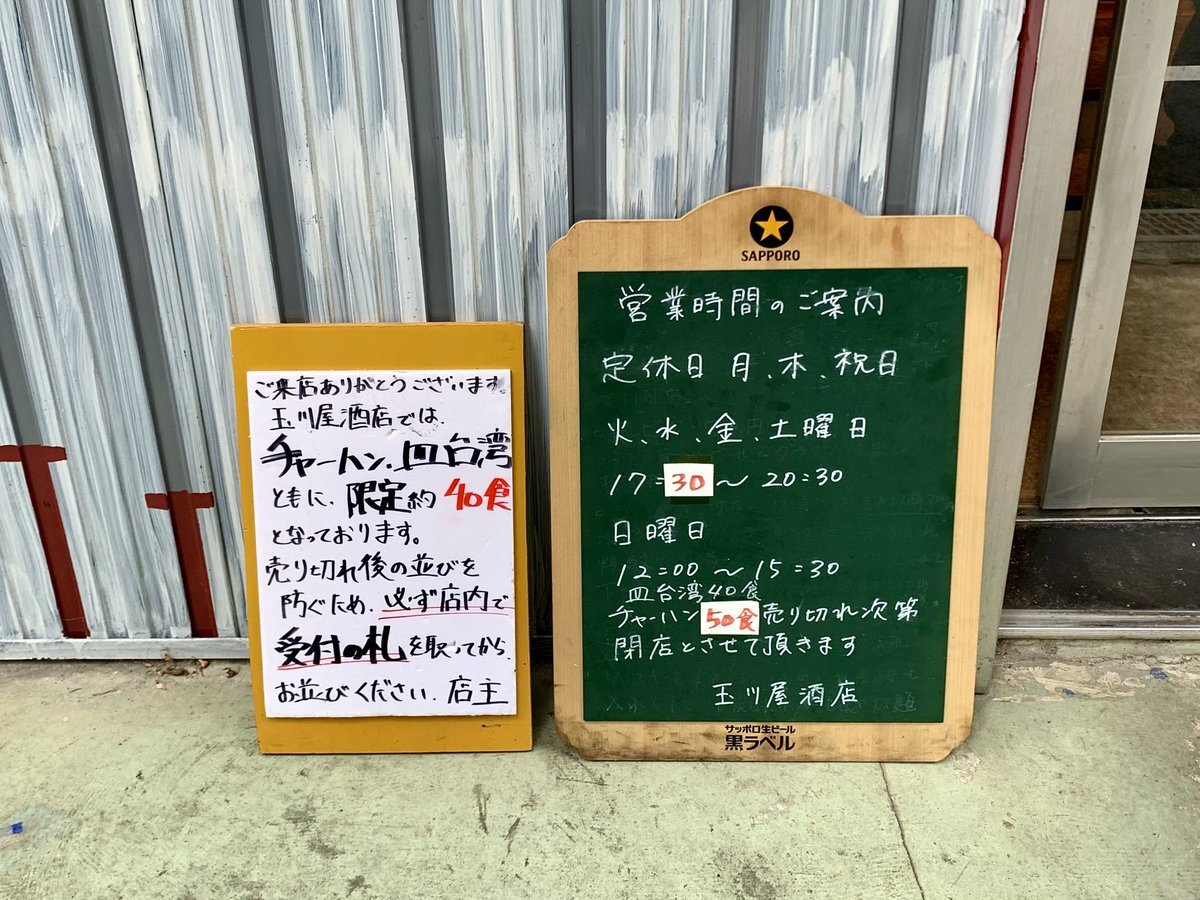 ご来店ありがとうございます。
玉川屋酒店では、
チャーハン、皿台湾
ともに、限定約40食
となっております。
売り切れ後の並びを
防ぐため、必ず店内で
受付の札を取ってから、
お並びください。店主
SAPPORO
営業時間のご案内
定休日 月、木、祝日
火、水、金、土曜日
17:30〜20:30
日曜日
12:00〜15:30
皿台湾40食
チャーハン50食売り切れ次第
閉店とさせて頂きます
玉川屋酒店
サッポロ生ビール
黒ラベル